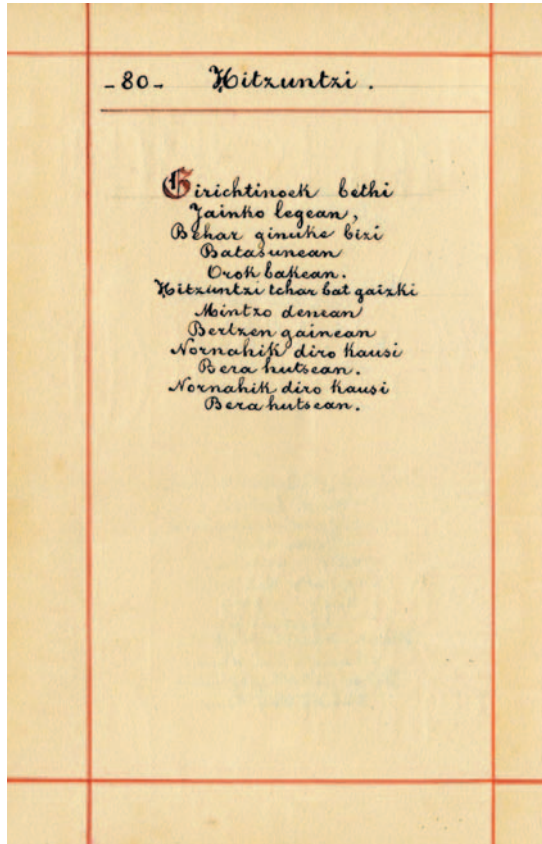 -80- Hitzuntzi.
Girichtinoek bethi
Jainko legean,
Behar ginuke bizi
Batasunean
Orok bakean.
Hitzuntzi tchar bat gaizki
Mintzo denean
Bertzen gainean
Nornahik diro kausi
Bera hutsean.
Nornahik diro kausi
Bera hutsean.